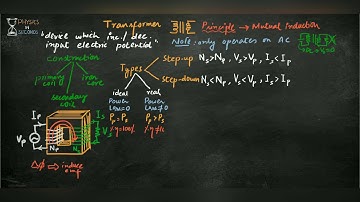 PHYSICS
IN
SECONDS
Transformer
Principle → Mutual induction
"device which inc./dec.
input electric potential"
Note: only operates on AC
Construction
primary coil
iron core
secondary coil
Types
step-up → Ns>Np, Vs>Vp, Is<Ip
step-down → Ns<Np, Vs<Vp, Is>Ip
ideal
Power Loss=0
Pp=Ps
real
Power Loss≠0
Pp>Ps
Ip
Vp
Np
Ns
Is
Vs
Δφ ⇒ induce emf